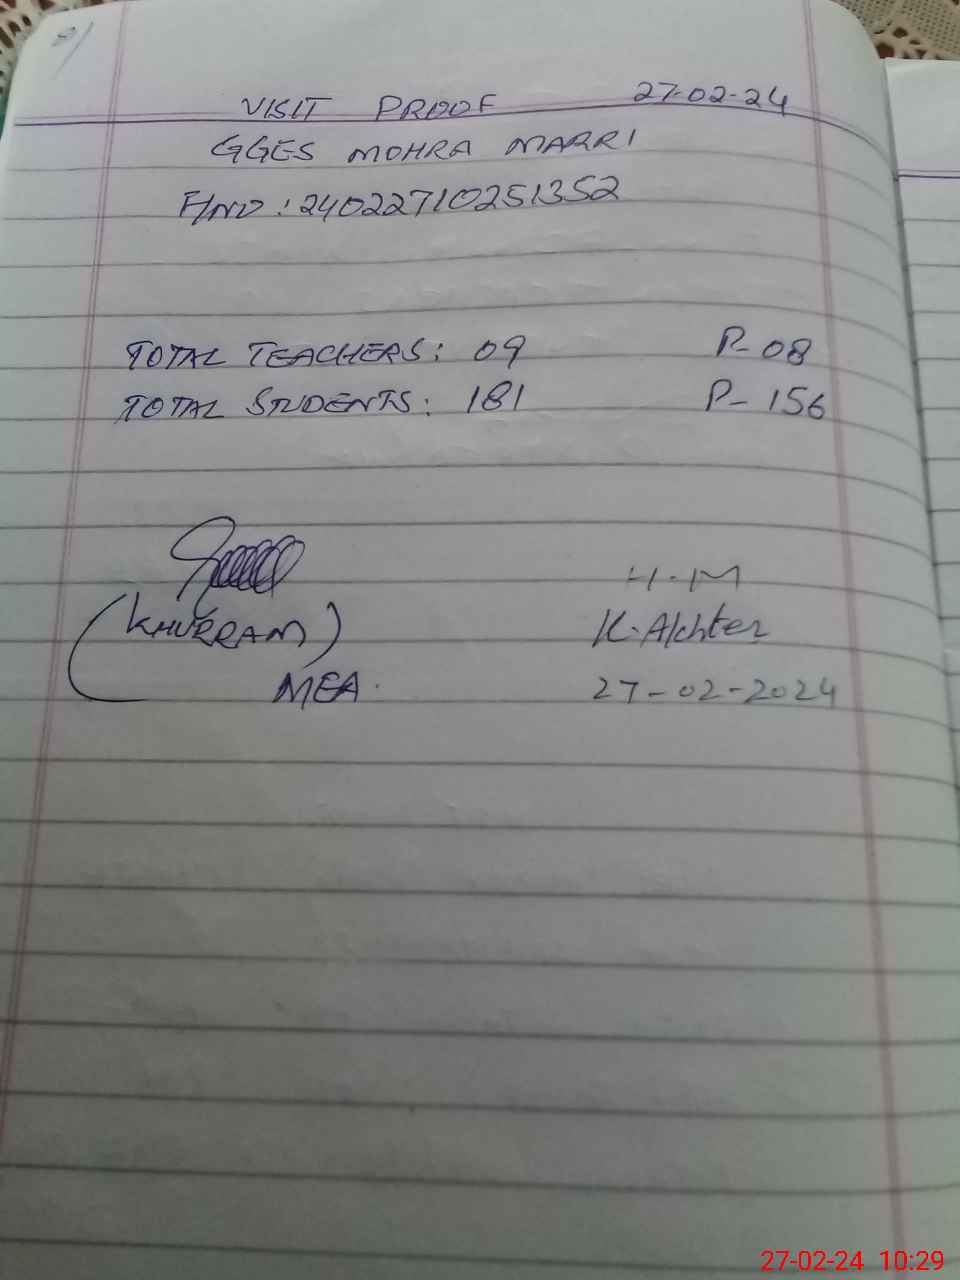 VISIT PROOF 27-02-24
GGES MOHRA MARRI
F/NO : 24022710251352
TOTAL TEACHERS: 09 P-08
TOTAL STUDENTS: 181 P-156
H.M
(KHURRAM) K.Akhter
MEA. 27-02-2024
27-02-24 10:29